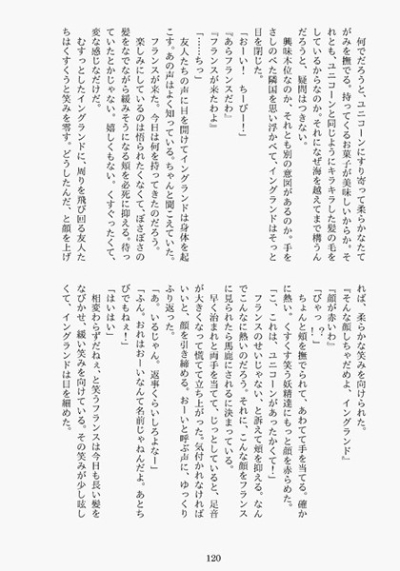 何でだろうと、ユニコーンにすり寄って柔らかなたて
がみを撫でる。持ってくるお菓子が美味しいからか。そ
れとも、ユニコーンと同じようにキラキラした髪の毛を
しているからなのか。それになぜ海を越えてまで構うん
だろうと、疑問はつきない。
興味本位なのか、それとも別の意図があるのか。手を
さしのべた隣国を思い浮かべて、イングランドはそっと
目を閉じた。
『おーい！　ちーびー！』
『あらフランスだわ』
『フランスが来たわよ』
「……ちっ」
友人たちの声に目を開けてイングランドは身体を起
こす。あの声はよく知っている。ちゃんと聞こえていた。
フランスが来た。今日は何を持ってきたのだろう。
楽しみにしているのは悟られたくなくて、ぼさぼさの
髪をなでながら緩みそうになる頬を必死に抑える。待っ
ていたとかじゃない。嬉しくもない。くすぐったくて、
変な感じなだけだ。
むすっとしたイングランドに、周りを飛び回る友人た
ちはくすくすと笑みを零す。どうしたんだ、と顔を上げ
れば、柔らかな笑みを向けられた。
『そんな顔しちゃだめよ、イングランド』
『顔が赤いわ』
「ぴゃっ？！」
ちょんと頬を撫でられて、あわてて手を当てる。確か
に熱い。くすくす笑う妖精達にもっと顔を赤らめた。
「こ、これは、ユニコーンがあったかくて！」
フランスのせいじゃない、と訴えて頬を抑える。なん
でこんなに熱いのだろう。それに、こんな顔をフランス
に見られたら馬鹿にされるに決まっている。
早く治まれと両手を当てて、じっとしていると、足音
が大きくなって慌てて立ち上がった。気付かれなければ
いいと、顔を引き締める。おーいと呼ぶ声に、ゆっくり
ふり返った。
「あ、いるじゃん。返事くらいしろよなー」
「ふん。おれはおーいなんて名前じゃねんだよ。あとち
びでもねぇ！」
「はいはい」
相変わらずだねぇ、と笑うフランスは今日も長い髪を
なびかせ、緩い笑みを向けている。その笑みが少し眩し
くて、イングランドは目を細めた。
120